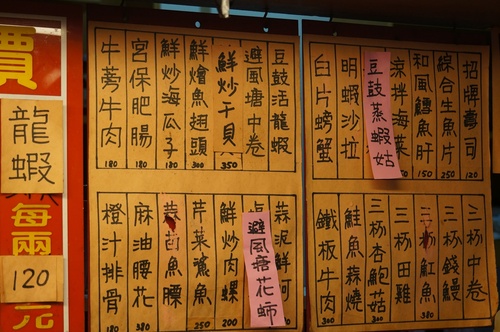 招牌壽司 120
綜合生魚片 250
和風鱈魚肝 150
涼拌海蜇
豆鼓蒸蝦姑
明蝦沙拉
白片螃蟹
三杯中卷
三杯錢鰻 300
三杯魟魚 380
三杯田雞
三杯杏鮑菇 300
鮭魚蒜燒
鐵板牛肉 300
豆鼓活龍蝦
避風塘中卷
鮮炒干貝 350
鮮燴魚翅頭 300
鮮炒海瓜子 180
宮保肥腸 180
牛蒡牛肉 180
蒜泥鮮蚵
避風塘花蛳
鮮炒肉螺 200
芹菜鯊魚 250
魚膘
麻油腰花 380
橙汁排骨 180
價
龍蝦
每兩
120
元